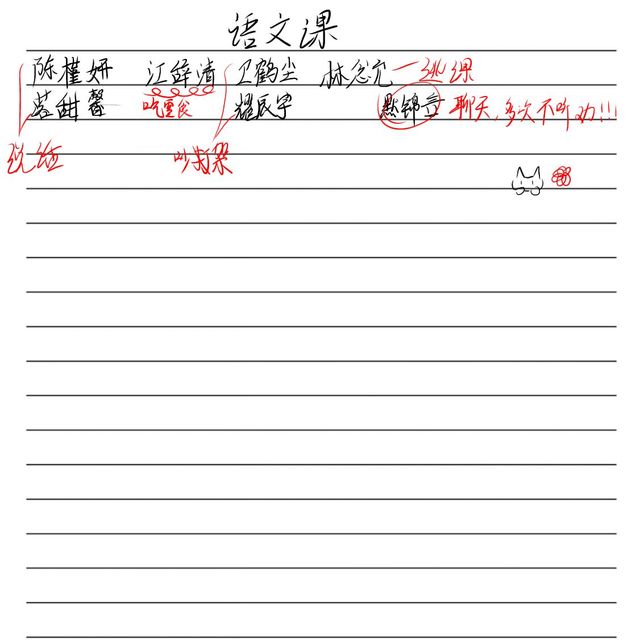 语文课
陈槿妍 江辞清 卫鹤尘 林念允 一 逃课
甜馨 吃零食 耀辰宇 锦章 聊天，多次不听劝!!!
说话 吵架